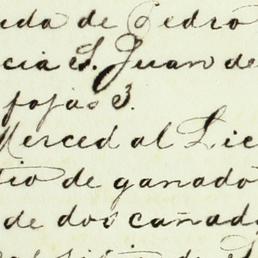 uda de Pedro
cia S. Juan de
fojas 3.
Merced al Lic
tio de ganado
de dos cañad